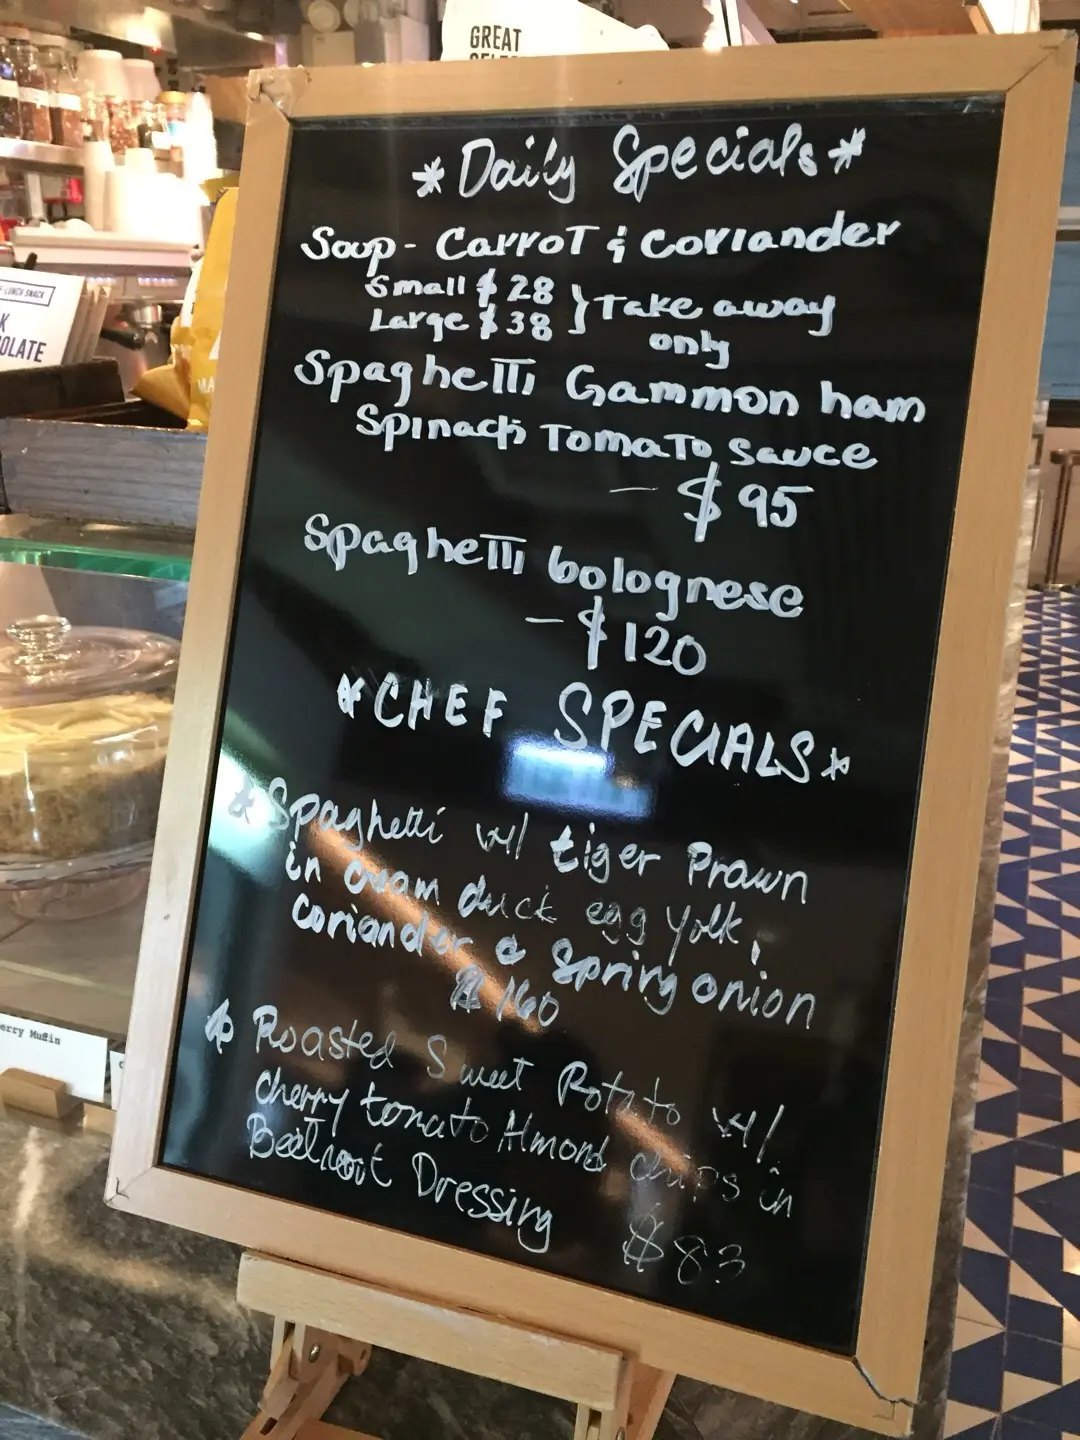 GREAT
-LUNCH SNACK
K
OLATE
MA
*Daily Specials*
Soup - Carrot & Coriander
Small $28
Large $38
} Take away
only
Spaghetti Gammon ham
Spinach Tomato sauce
- $95
Spaghetti bolognese
- $120
*CHEF SPECIALS*
* Spaghetti w/ tiger Prawn
in cream duck egg yolk,
Coriander & Spring onion
$160
* Roasted Sweet Potato w/
cherry tomato Almond chips in
Beetroot Dressing $83
erry Muffin